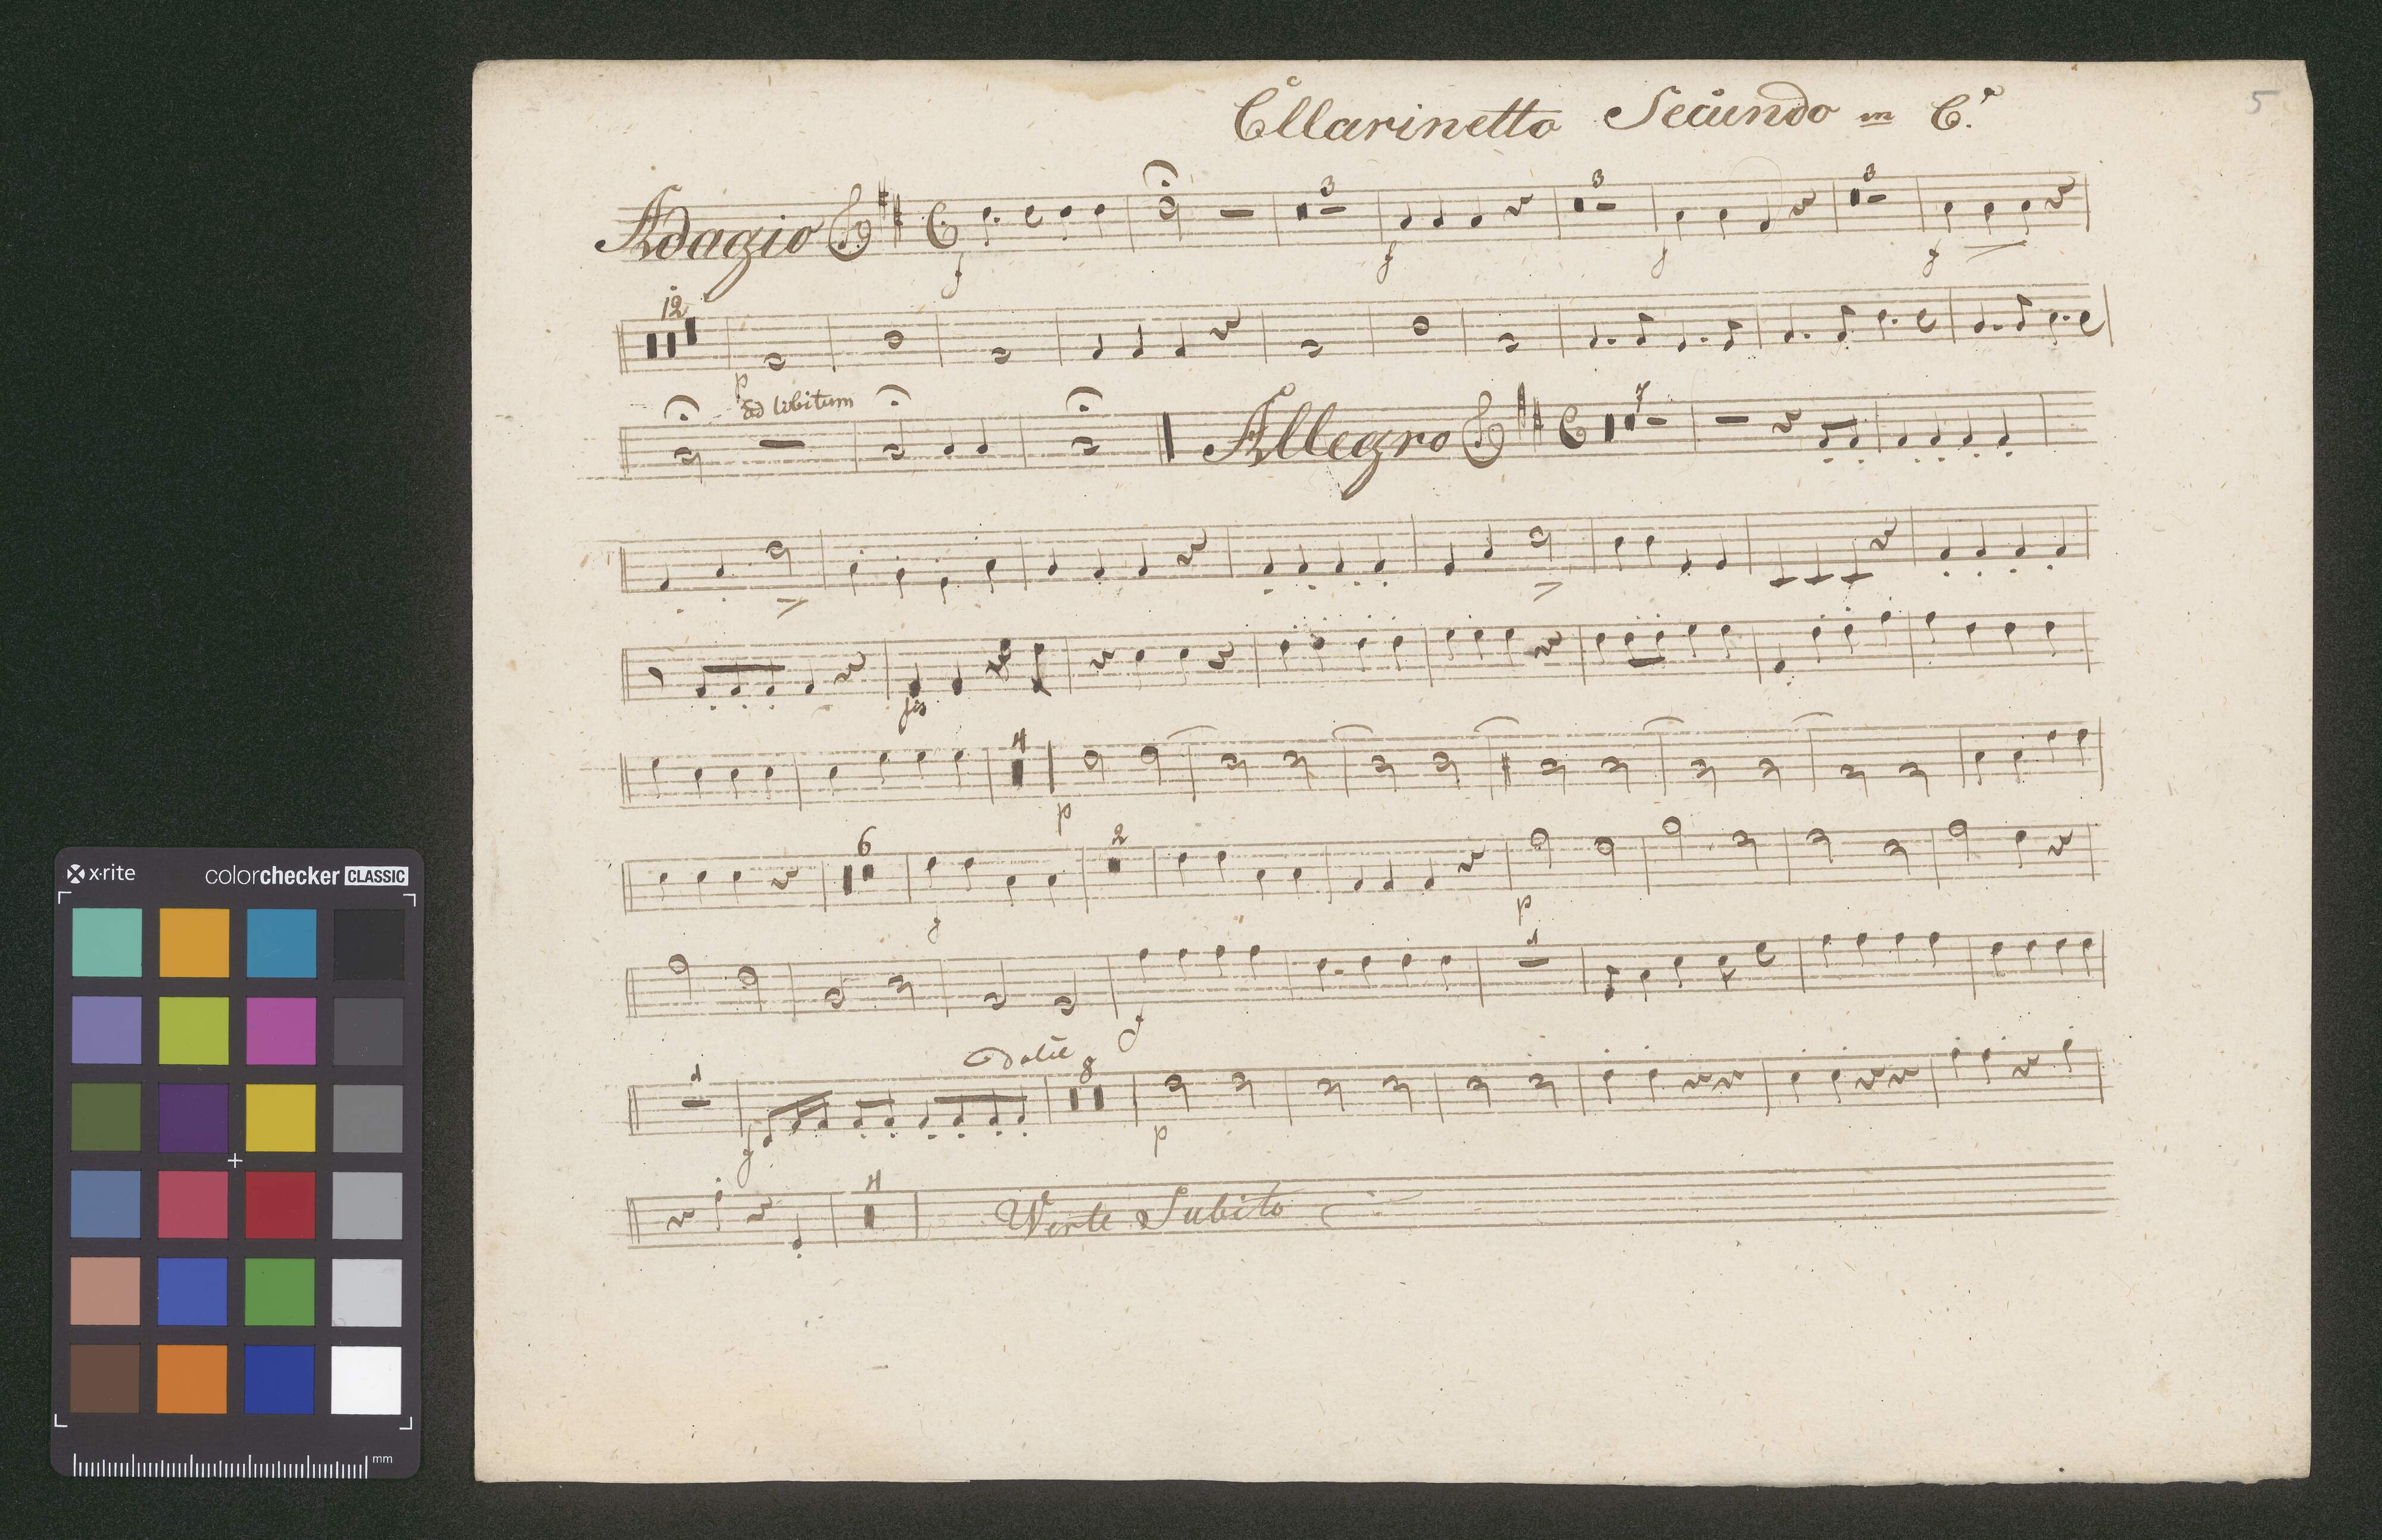 Cllarinetto Secundo in C.
5
Adagio
3 3 3
f f f f
12
p
ad libitum
Allegro 7
fis
4
p
6 2
f p
1
f
1 Dolce 8
f p
4 Verte Subito
x-rite colorchecker CLASSIC
mm